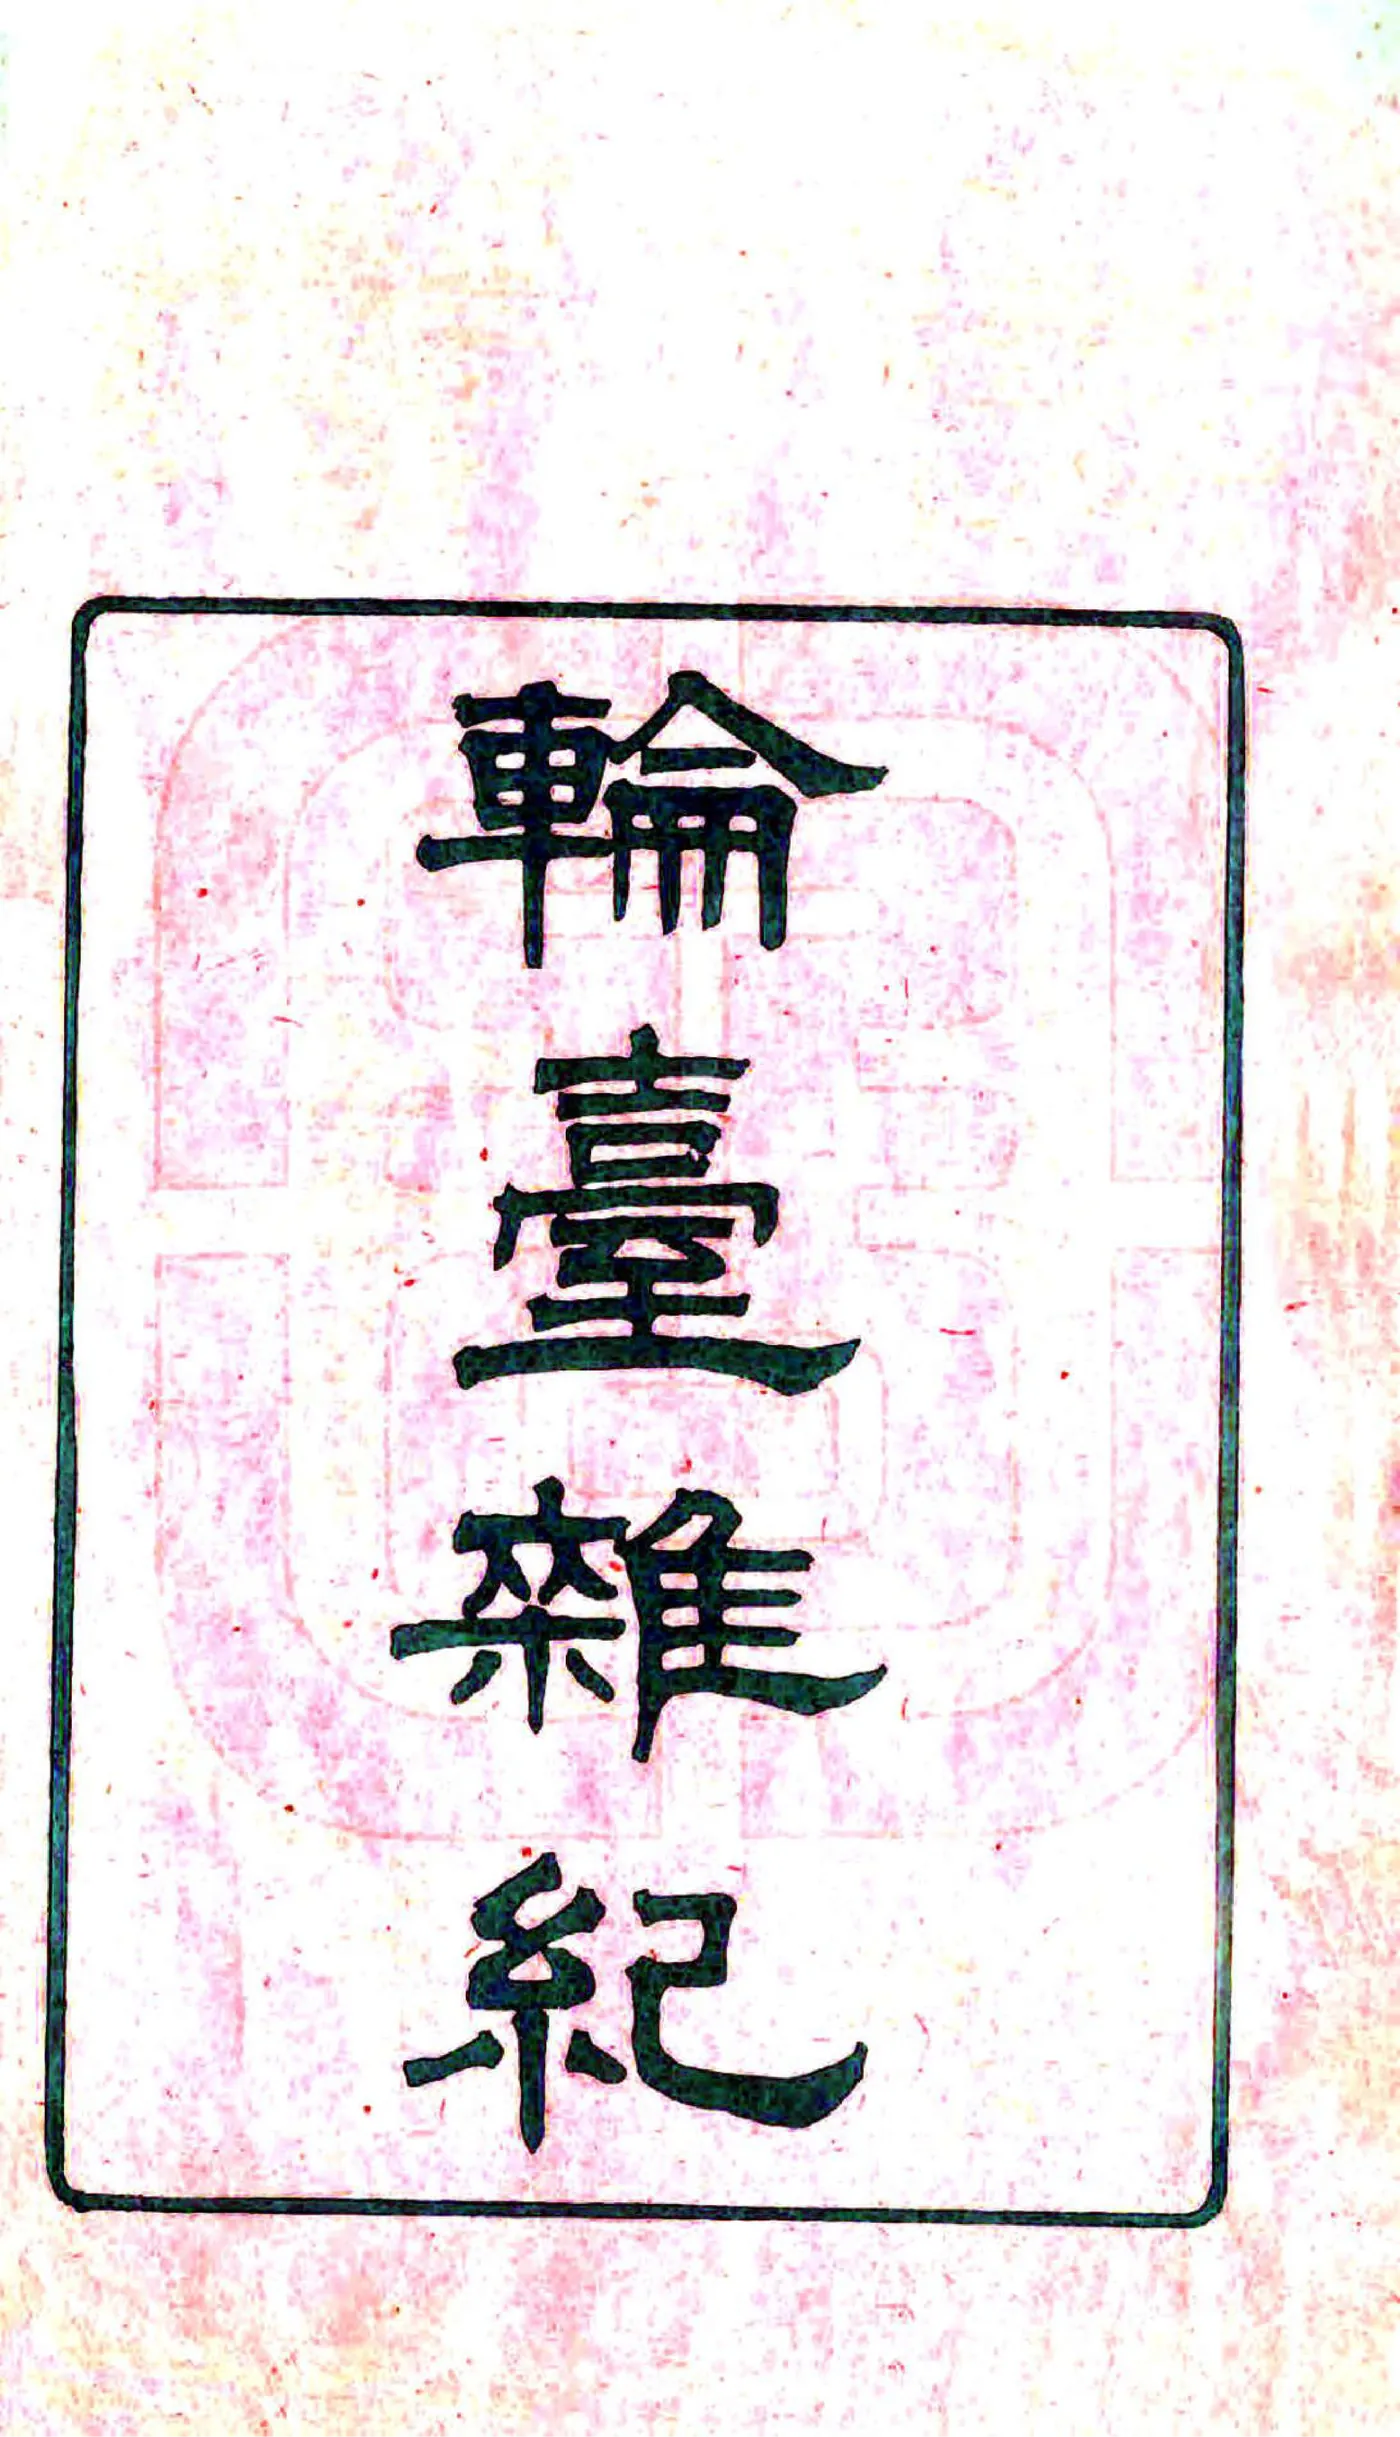 輪臺雜紀